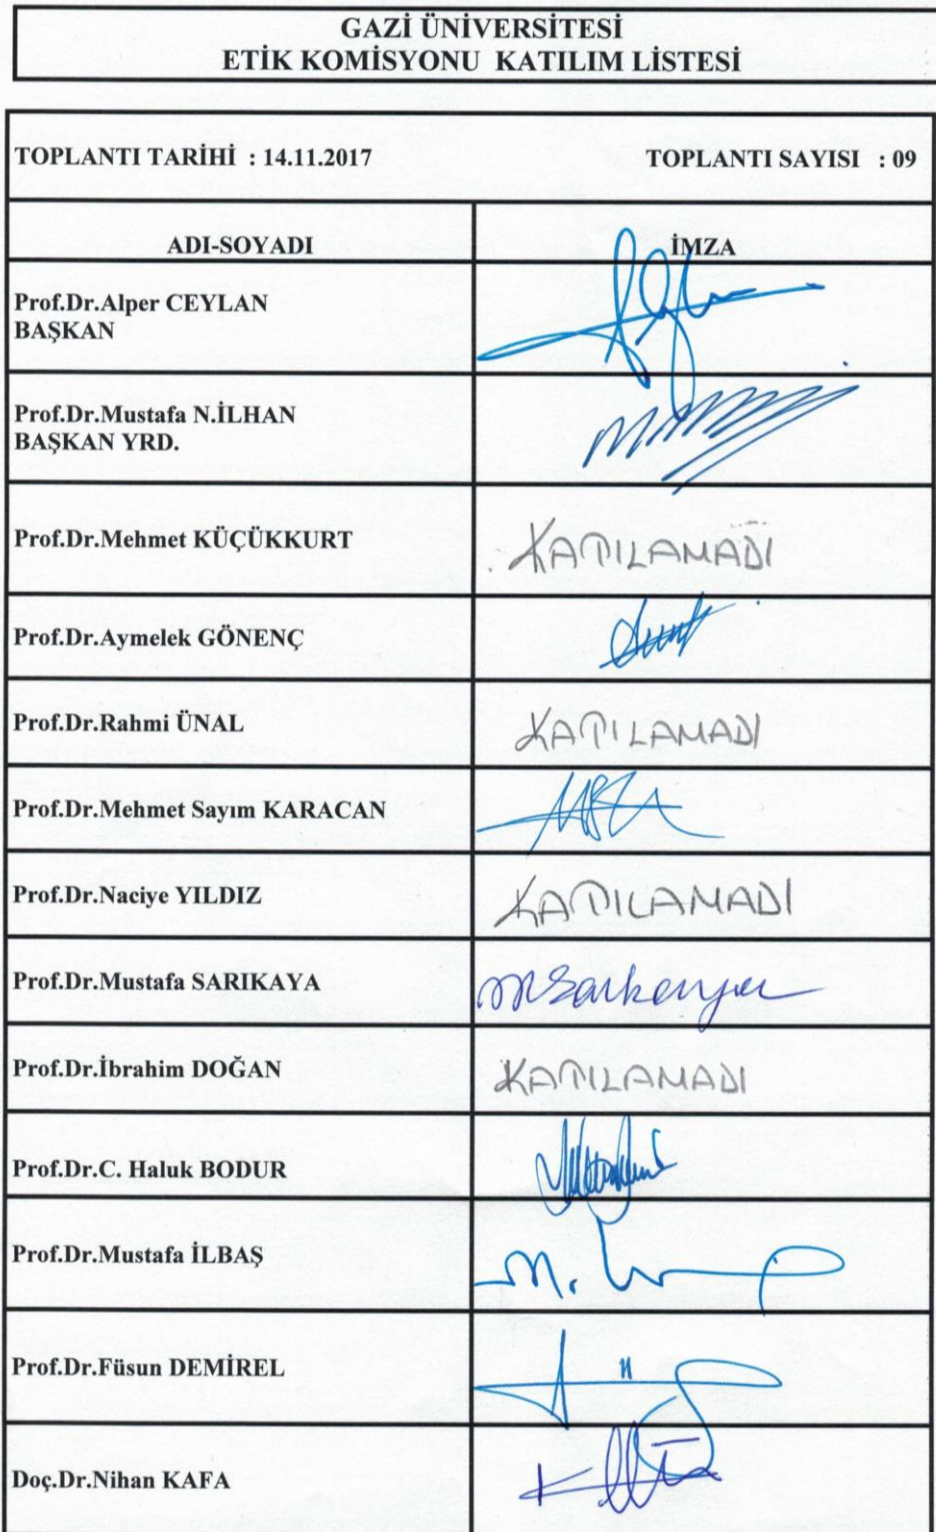 GAZİ ÜNİVERSİTESİ
ETİK KOMİSYONU KATILIM LİSTESİ
TOPLANTI TARİHİ : 14.11.2017 TOPLANTI SAYISI : 09
ADI-SOYADI İMZA
Prof.Dr.Alper CEYLAN
BAŞKAN
Prof.Dr.Mustafa N.İLHAN
BAŞKAN YRD.
Prof.Dr.Mehmet KÜÇÜKKURT KATILAMADI
Prof.Dr.Aymelek GÖNENÇ
Prof.Dr.Rahmi ÜNAL KATILAMADI
Prof.Dr.Mehmet Sayım KARACAN
Prof.Dr.Naciye YILDIZ KATILAMADI
Prof.Dr.Mustafa SARIKAYA
Prof.Dr.İbrahim DOĞAN KATILAMADI
Prof.Dr.C. Haluk BODUR
Prof.Dr.Mustafa İLBAŞ
Prof.Dr.Füsun DEMİREL
Doç.Dr.Nihan KAFA